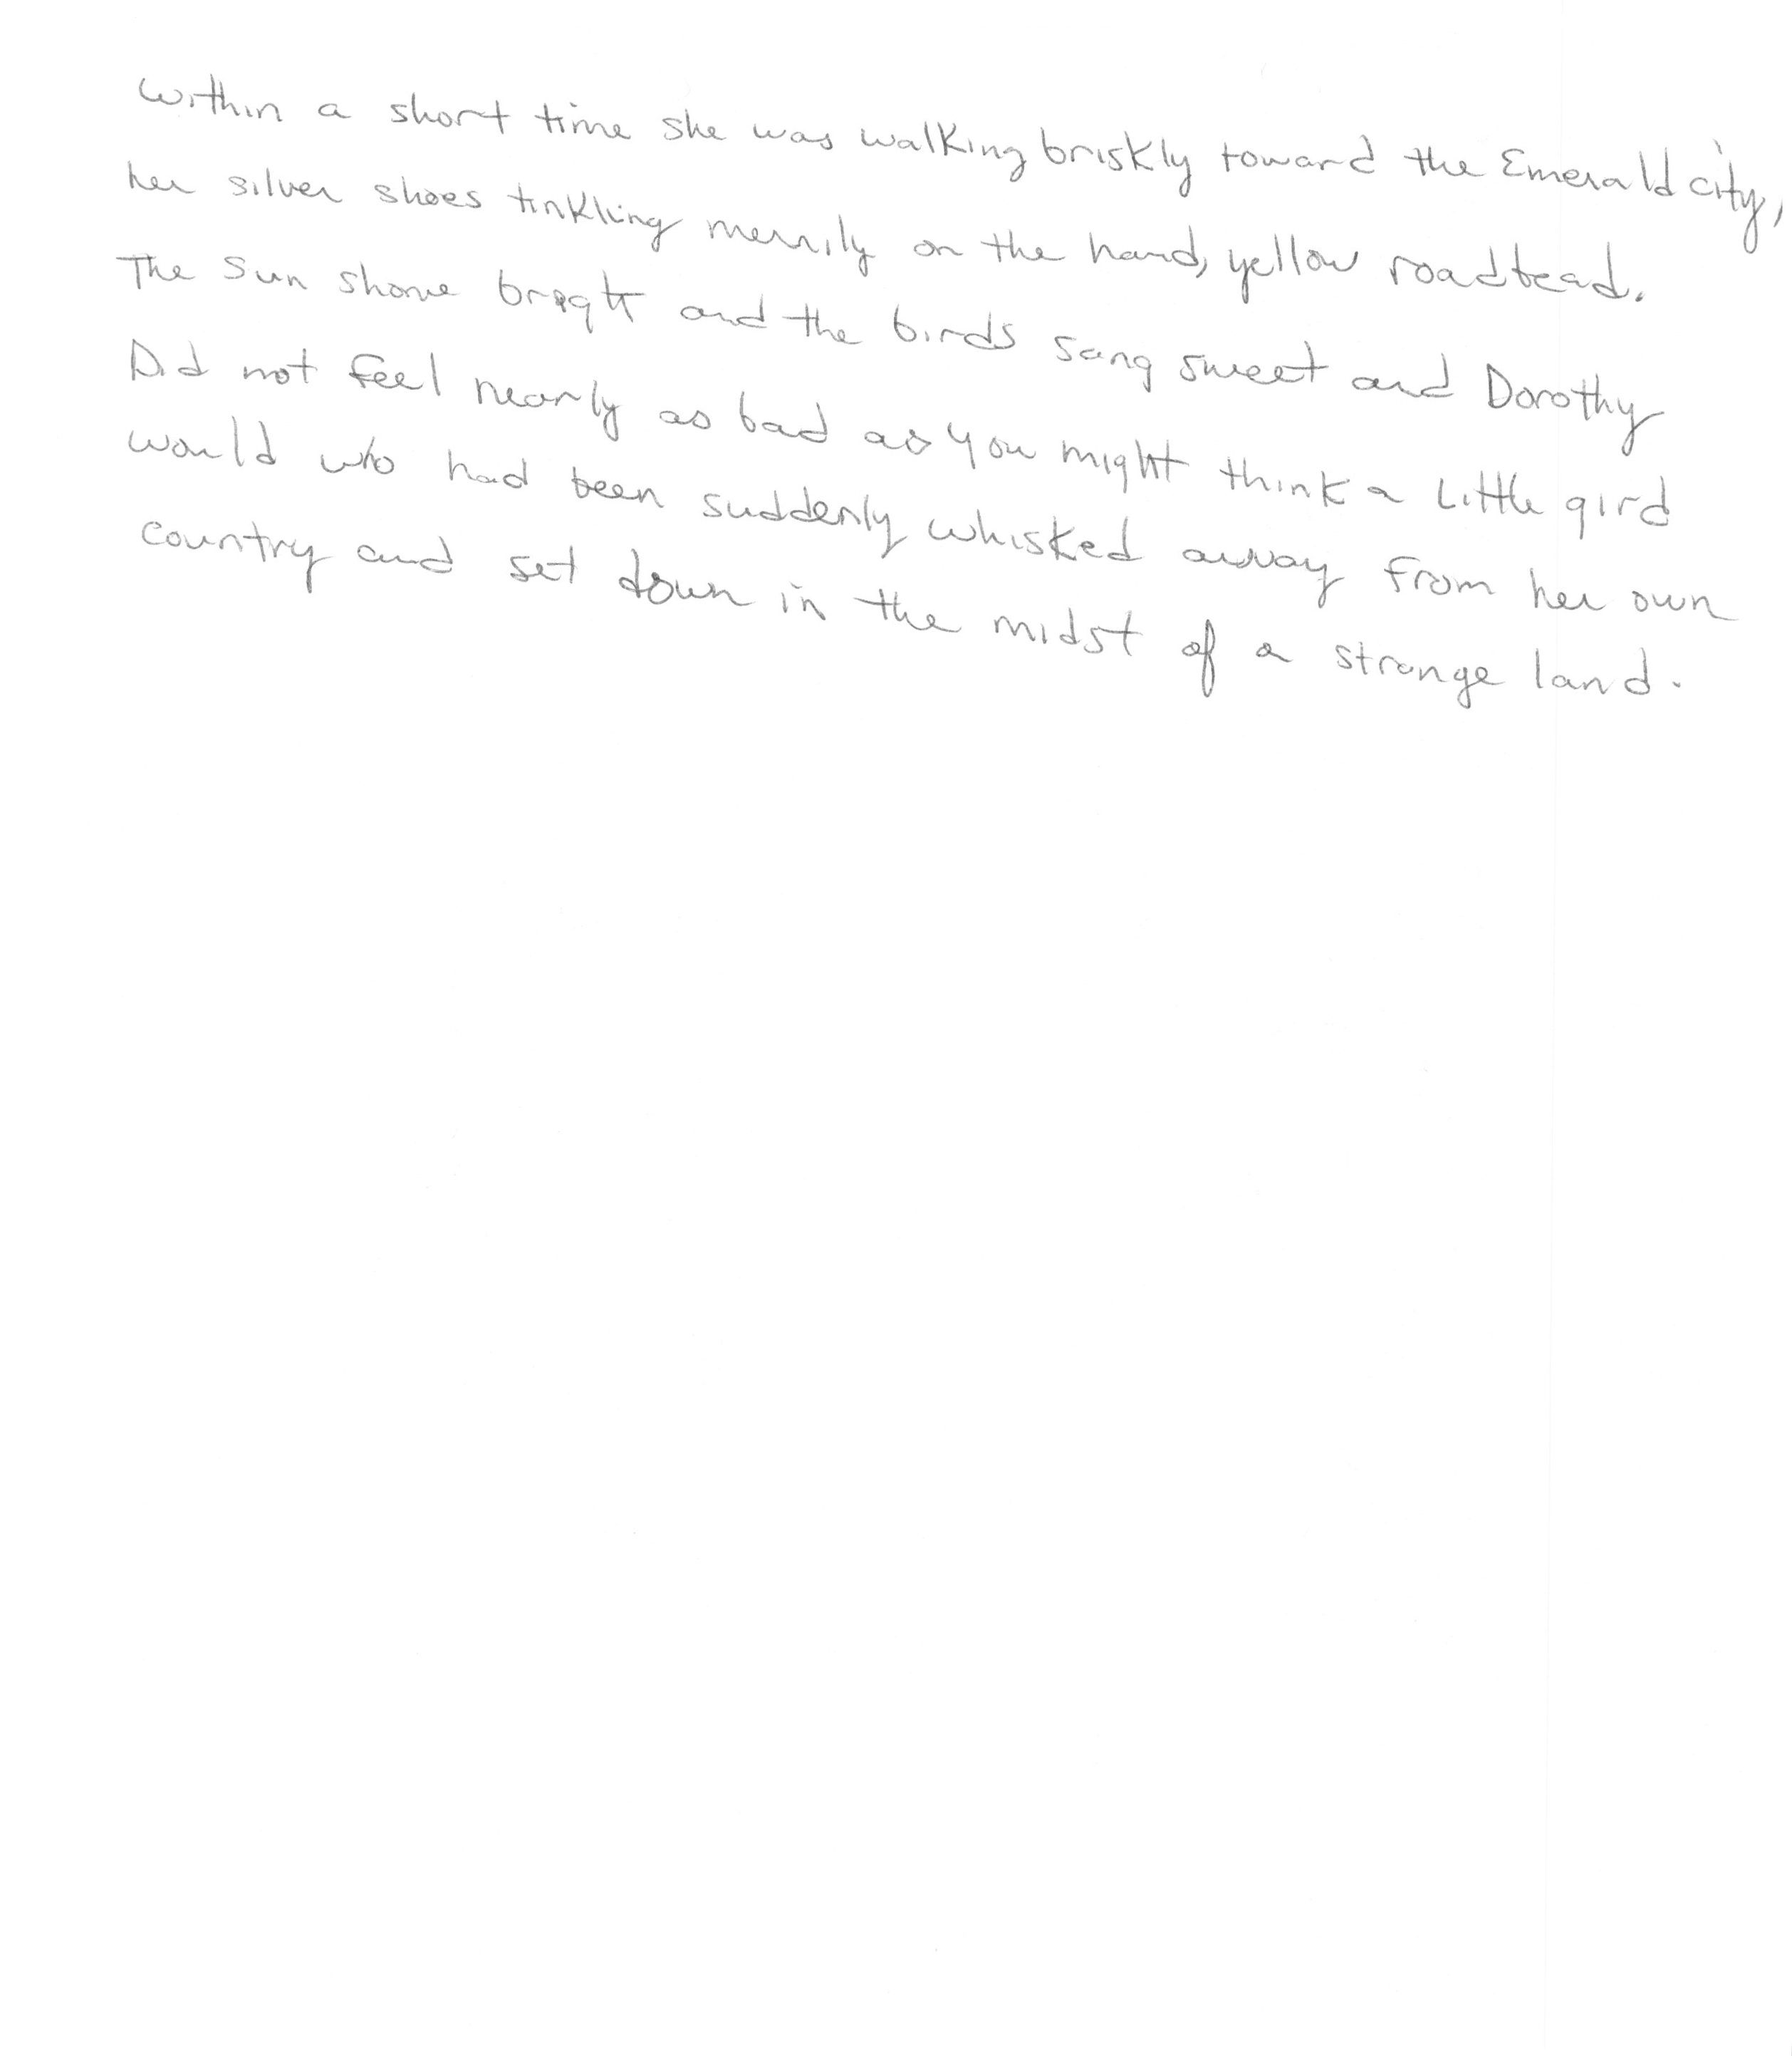 Within a short time she was walking briskly toward the Emerald city,
her silver shoes tinkling merrily on the hard, yellow roadbead.
The sun shone bright and the birds sang sweet and Dorothy
Did not feel nearly as bad as you might think a little gird
would who had been suddenly whisked away from her own
country and set down in the midst of a strange land.